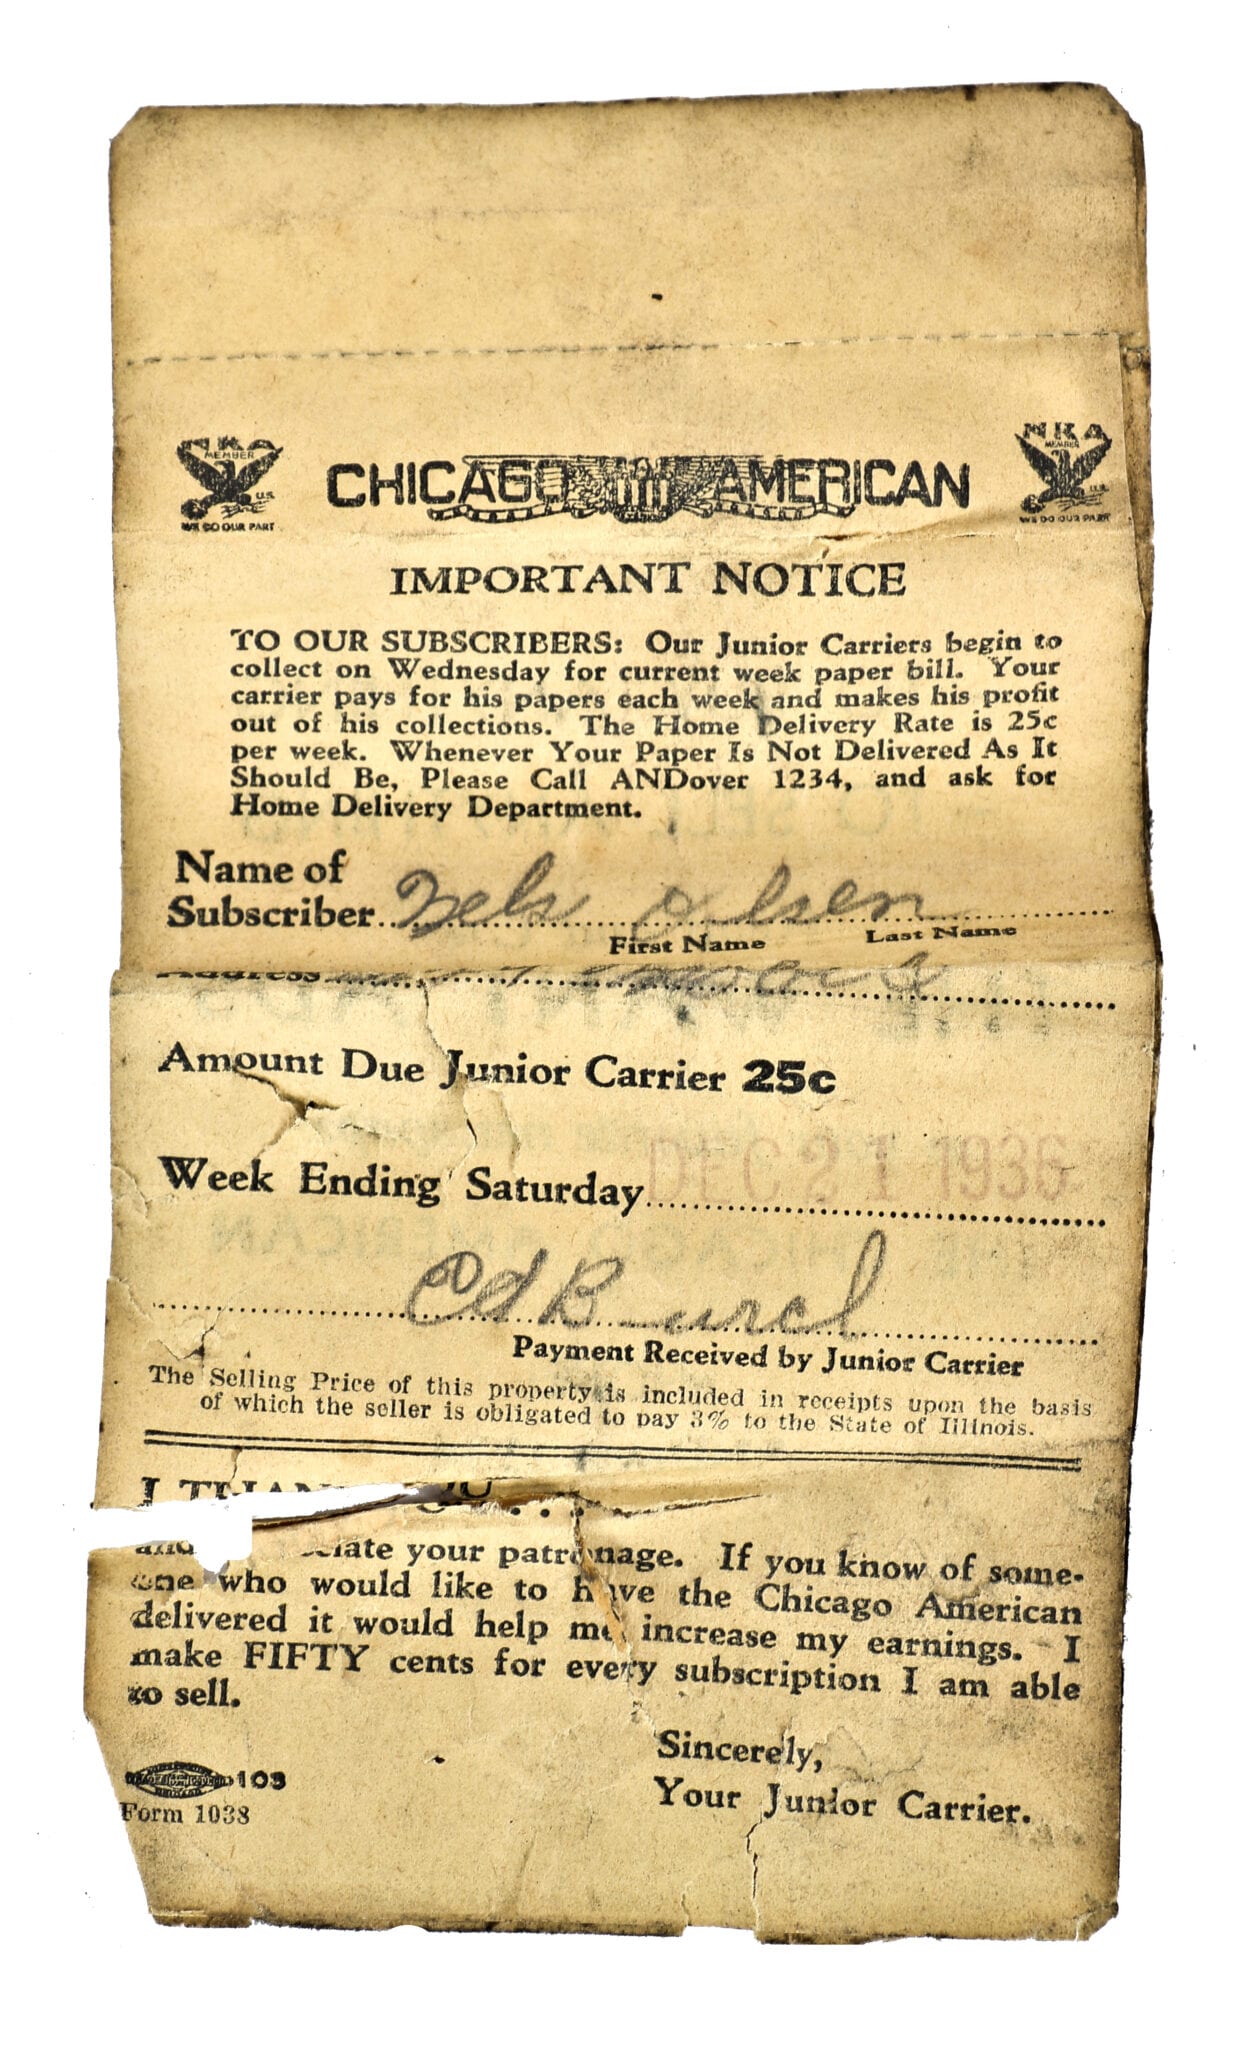 NRA
MEMBER
U.S.
WE DO OUR PART
CHICAGO AMERICAN
NRA
MEMBER
U.S.
WE DO OUR PART
IMPORTANT NOTICE
TO OUR SUBSCRIBERS: Our Junior Carriers begin to
collect on Wednesday for current week paper bill. Your
carrier pays for his papers each week and makes his profit
out of his collections. The Home Delivery Rate is 25c
per week. Whenever Your Paper Is Not Delivered As It
Should Be, Please Call ANDover 1234, and ask for
Home Delivery Department.
Name of
Subscriber Nels Olsen
First Name Last Name
Address
Amount Due Junior Carrier 25c
Week Ending Saturday DEC 21 1935
Ed B
Payment Received by Junior Carrier
The Selling Price of this property is included in receipts upon the basis
of which the seller is obligated to pay 3% to the State of Illinois.
I THANK YOU...
and your patronage. If you know of some-
one who would like to have the Chicago American
delivered it would help me increase my earnings. I
make FIFTY cents for every subscription I am able
to sell.
Sincerely,
Your Junior Carrier.
103
Form 1038